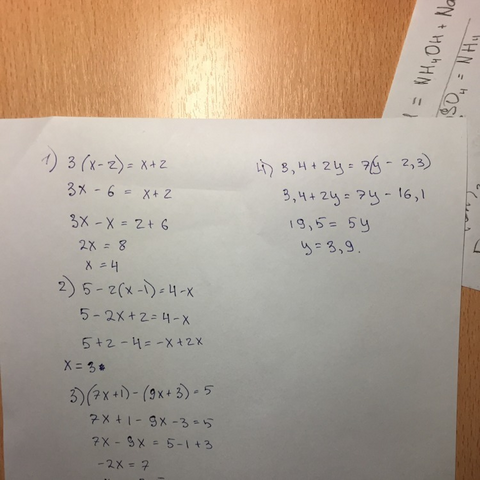 1) 3(x-2) = x+2
3x - 6 = x+2
3x - x = 2+6
2x = 8
x = 4
2) 5 - 2(x-1) = 4-x
5 - 2x + 2 = 4-x
5 + 2 - 4 = -x + 2x
x = 3.
3) (7x+1) - (9x+3) = 5
7x + 1 - 9x - 3 = 5
7x - 9x = 5 - 1 + 3
-2x = 7
4) 3,4 + 2y = 7(y - 2,3)
3,4 + 2y = 7y - 16,1
19,5 = 5y
y = 3,9.
= NH4OH + Na
SO4 = NH4